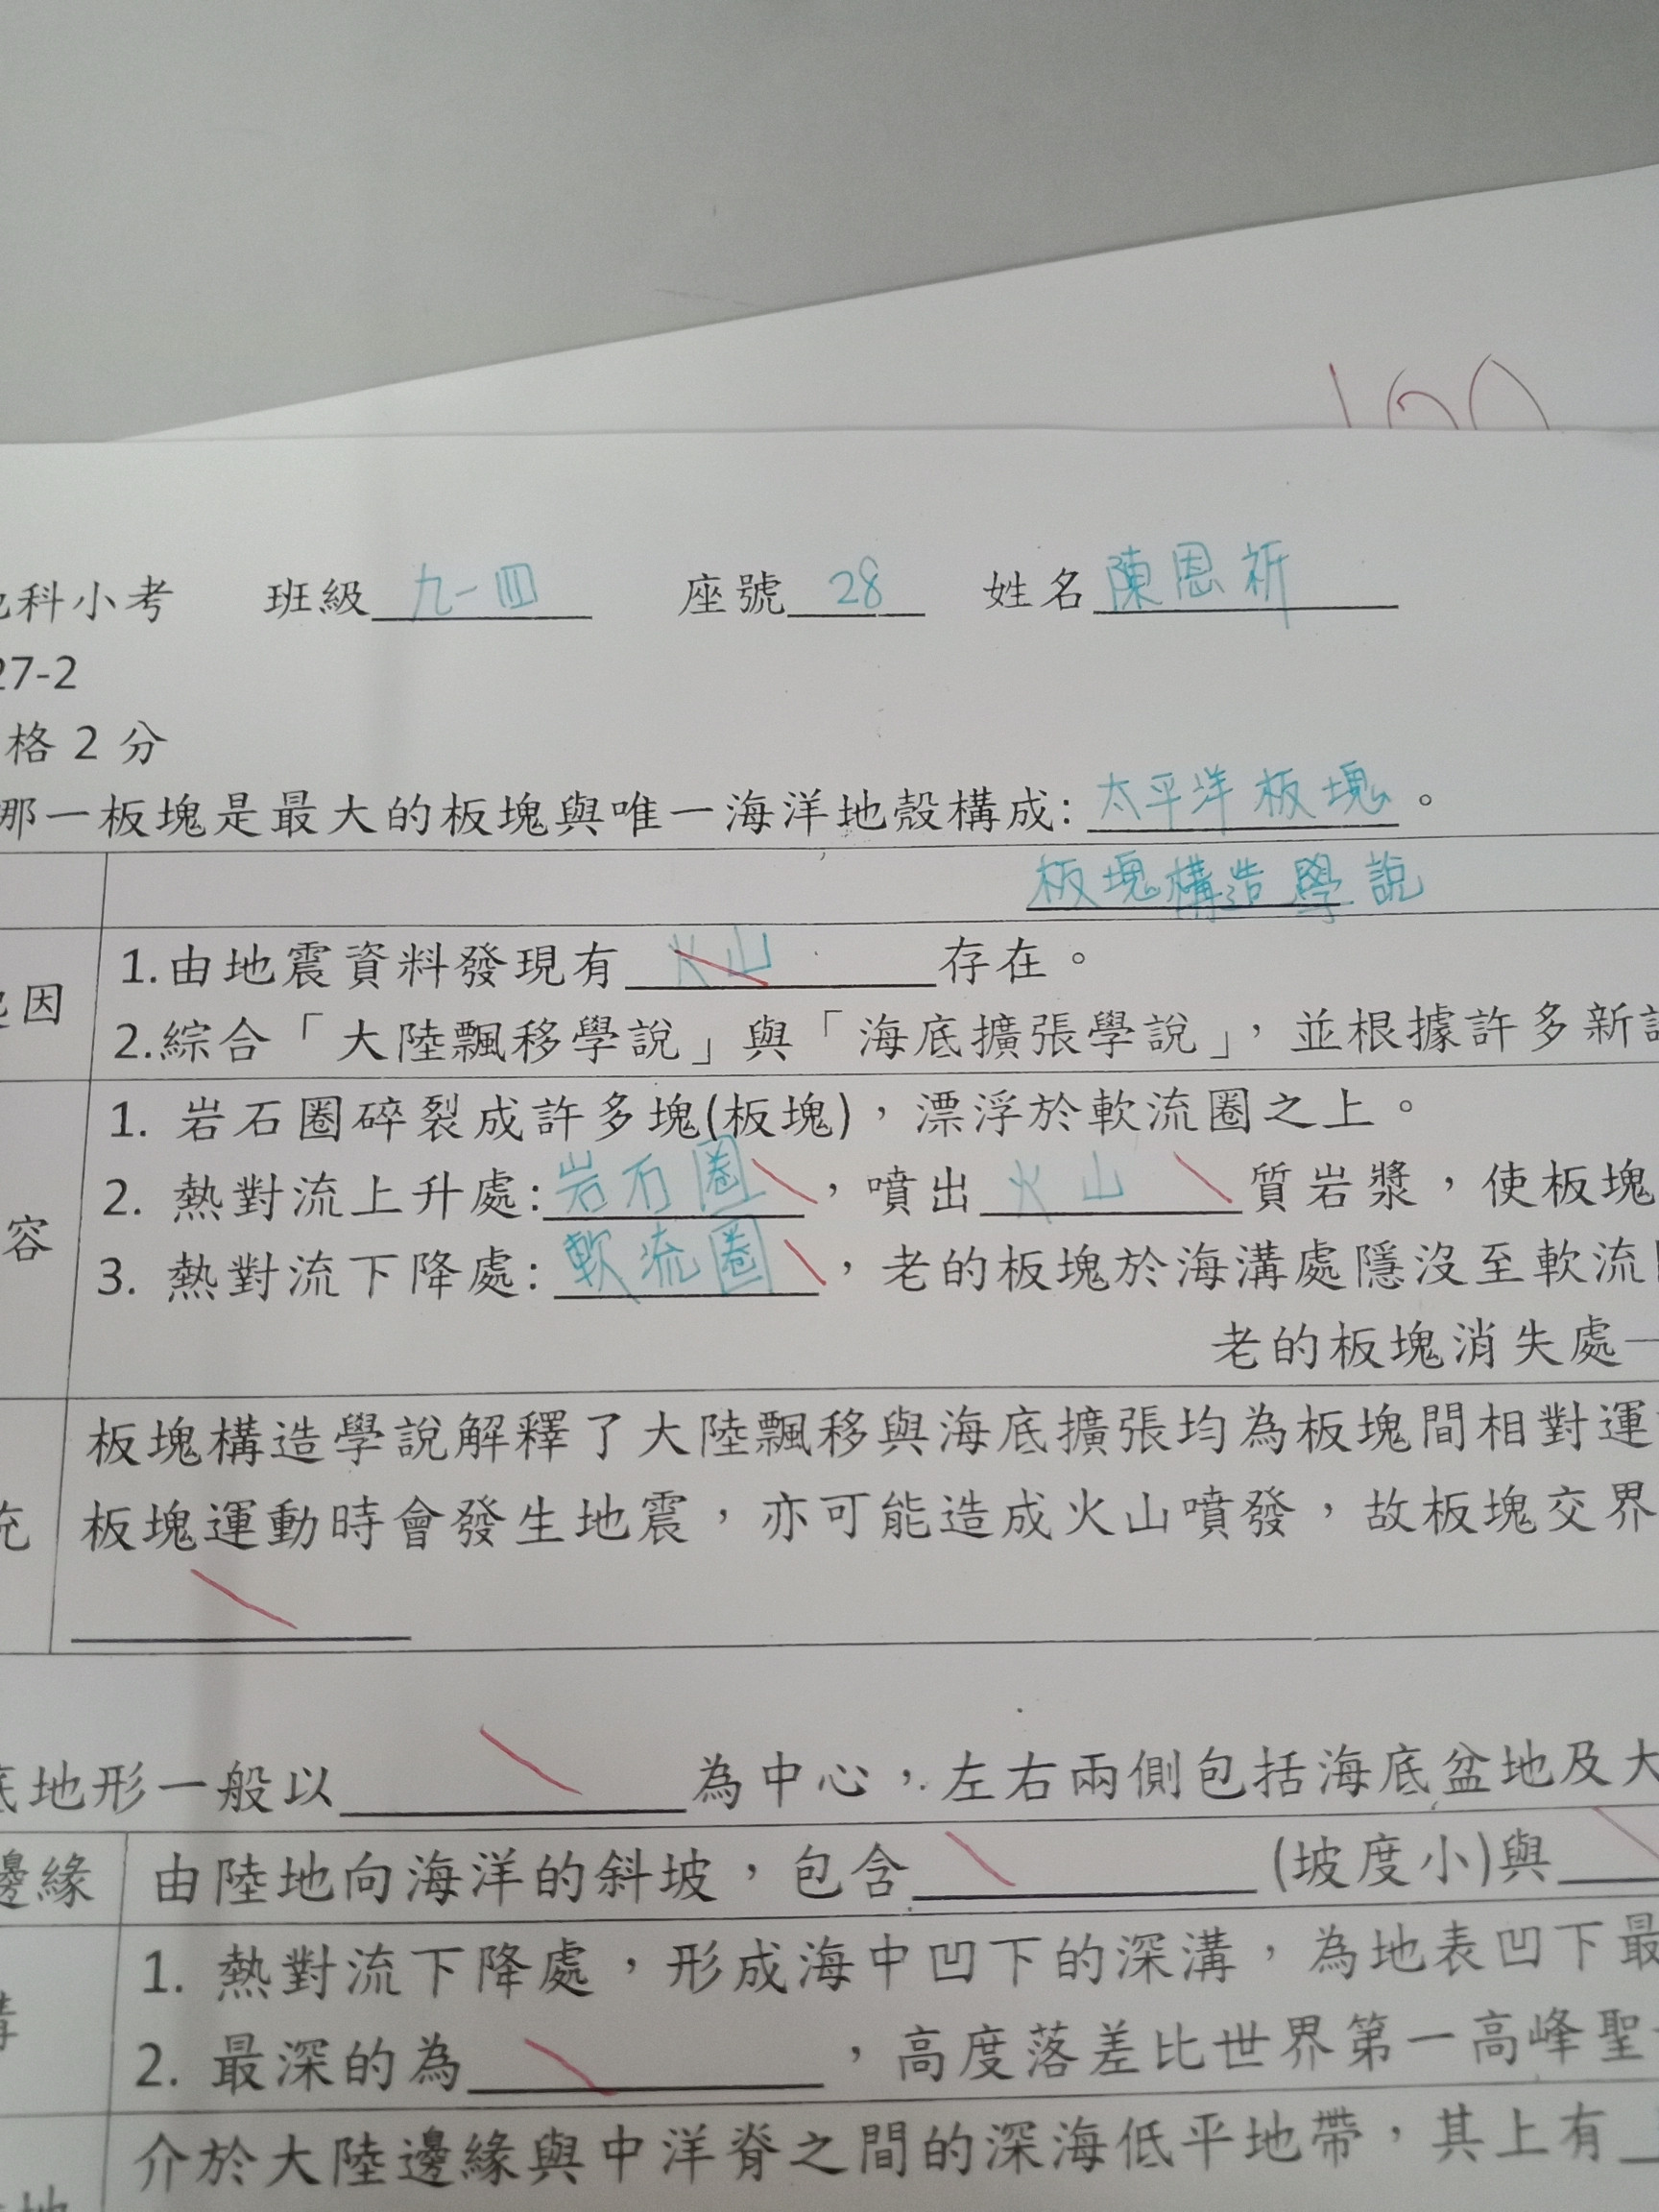 100
科小考 班級 九-四 座號 28 姓名 陳恩祈
27-2
格2分
哪一板塊是最大的板塊與唯一海洋地殼構成: 太平洋板塊。
板塊構造學說
因
1.由地震資料發現有 火山 存在。
2.綜合「大陸飄移學說」與「海底擴張學說」,並根據許多新
容
1. 岩石圈碎裂成許多塊(板塊),漂浮於軟流圈之上。
2. 熱對流上升處: 岩石圈,噴出 火山 質岩漿,使板塊
3. 熱對流下降處: 軟流圈,老的板塊於海溝處隱沒至軟流
老的板塊消失處一
充
板塊構造學說解釋了大陸飄移與海底擴張均為板塊間相對運
板塊運動時會發生地震,亦可能造成火山噴發,故板塊交界
底地形一般以 為中心,左右兩側包括海底盆地及大
邊緣 由陸地向海洋的斜坡,包含 (坡度小)與
溝
1. 熱對流下降處,形成海中凹下的深溝,為地表凹下最
2. 最深的為 ,高度落差比世界第一高峰聖
介於大陸邊緣與中洋脊之間的深海低平地帶,其上有
地